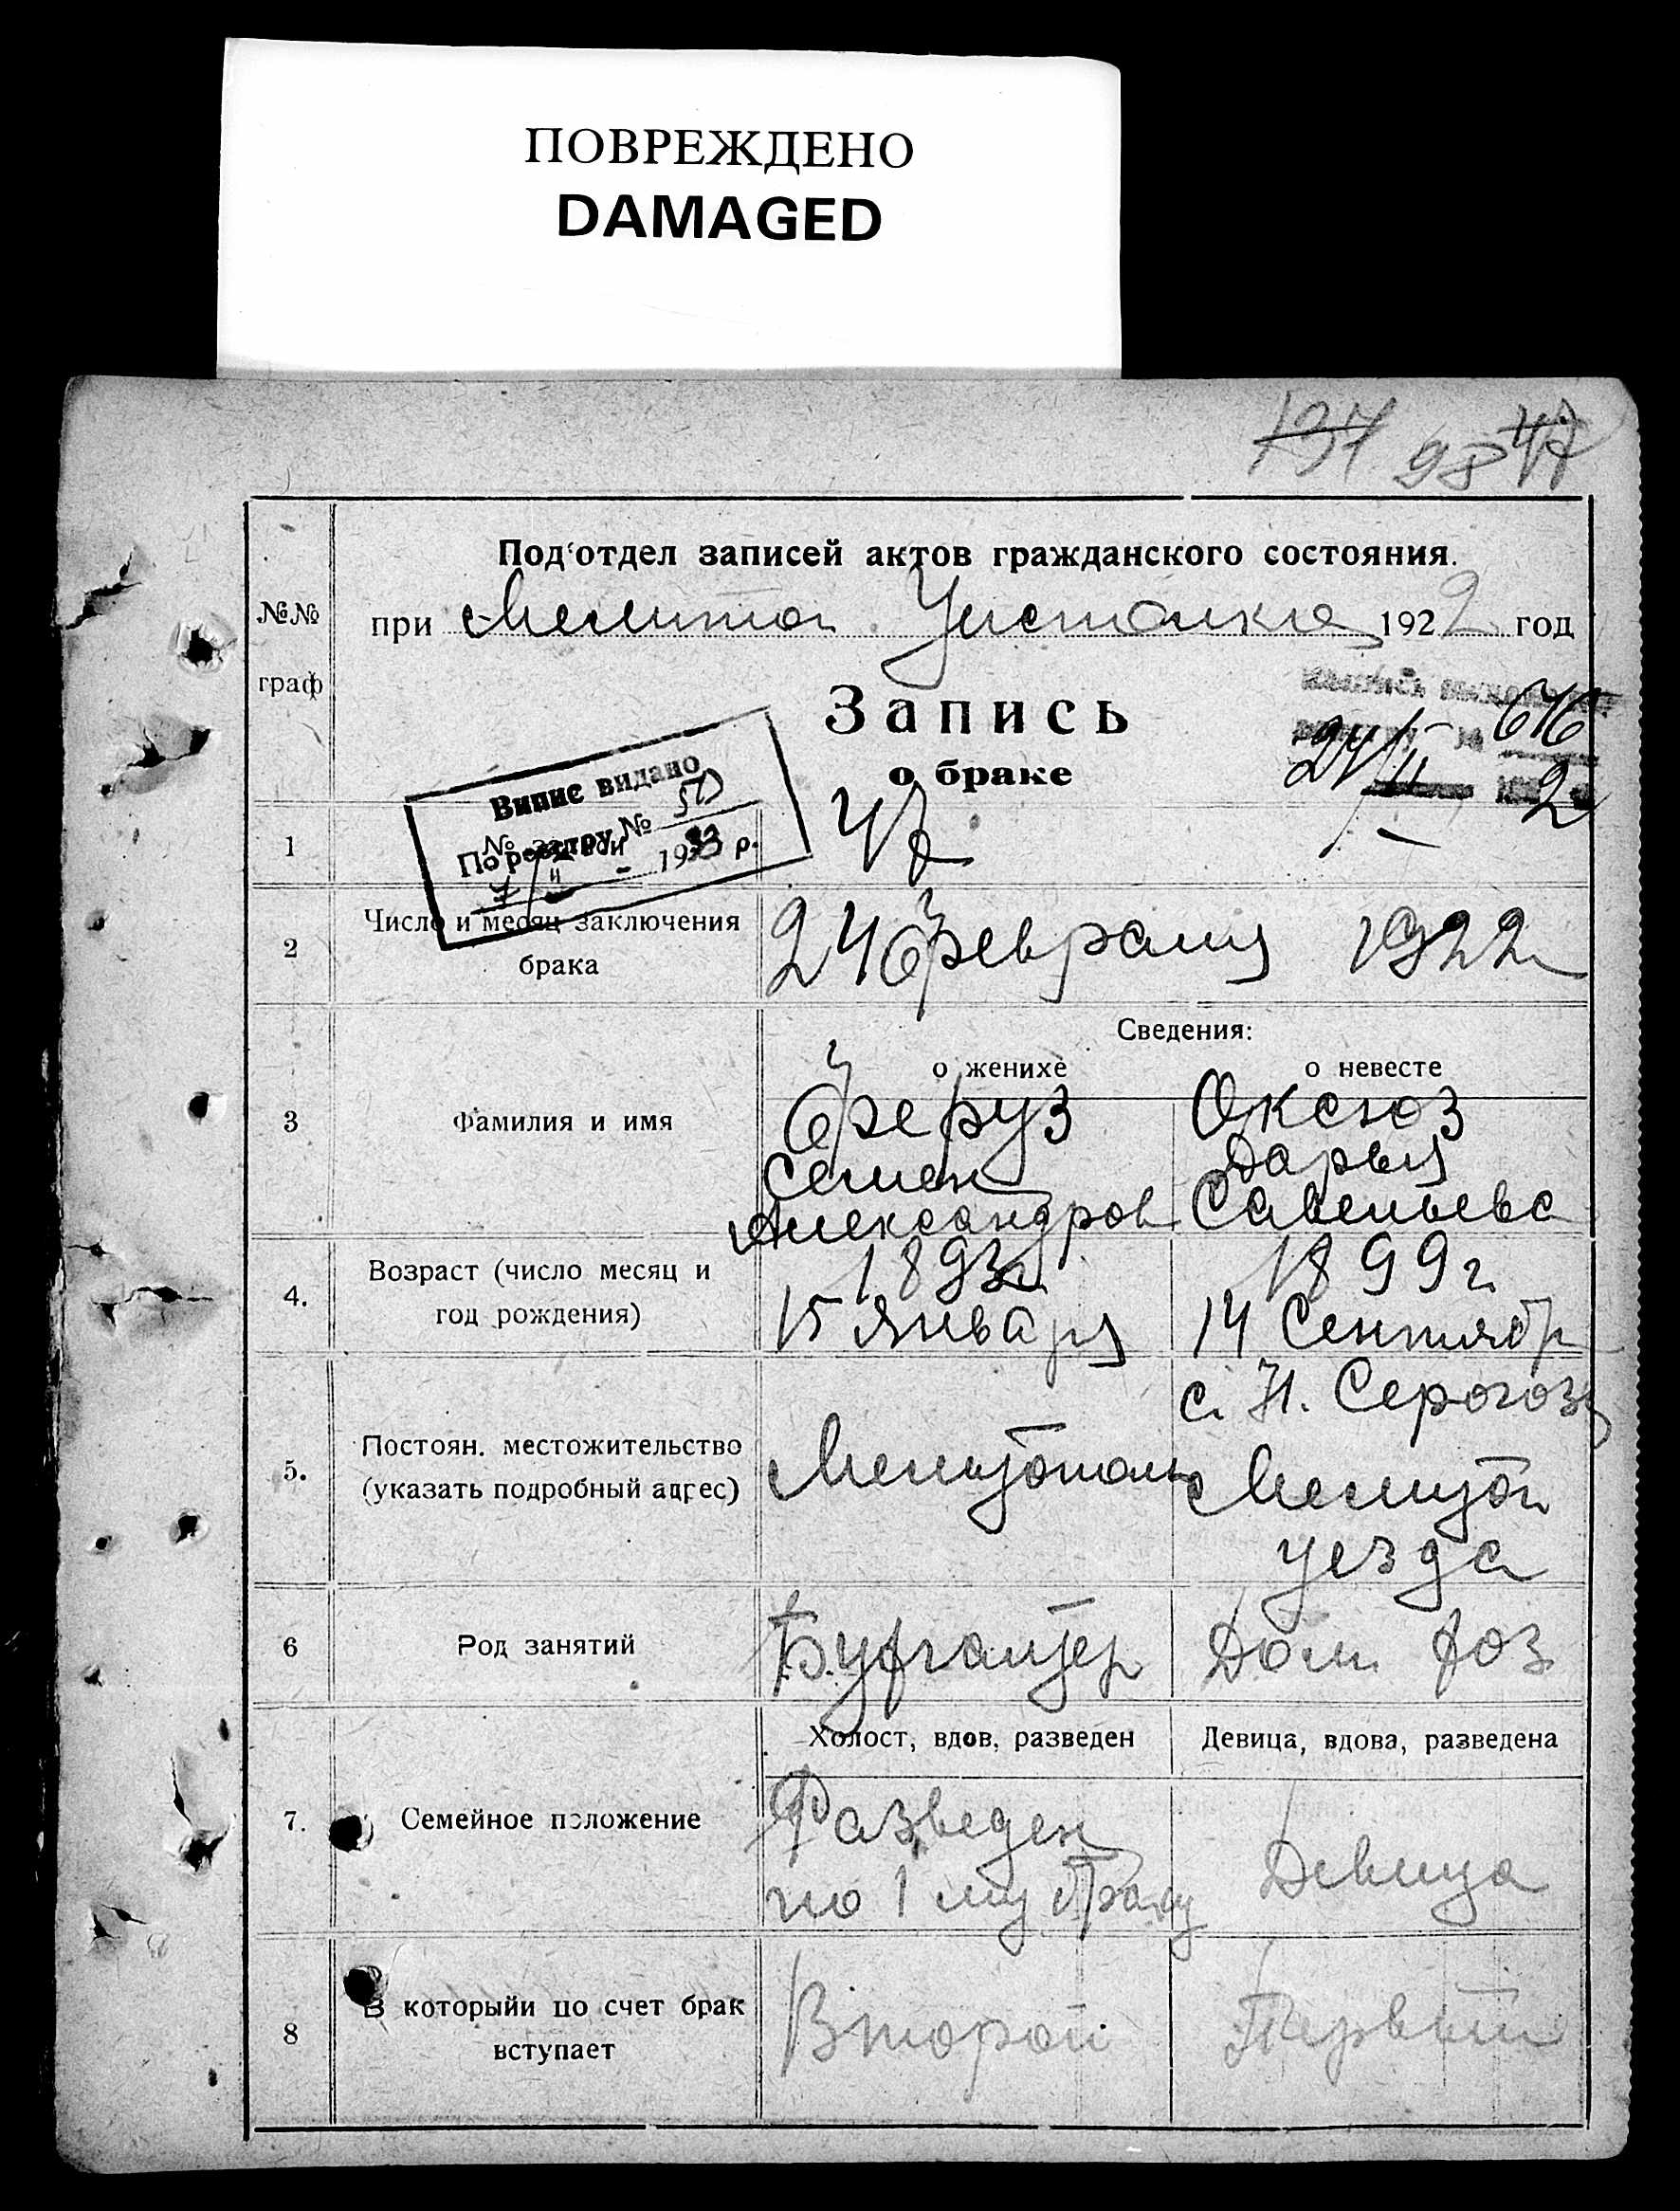 ПОВРЕЖДЕНО
DAMAGED
137 98 47
Под'отдел записей актов гражданского состояния.
№№
при Мелитоп. 1922 год
граф
Запись
о браке
646
24/II
2
Випис видано
По реєстру № 50
7/II - 1933 р.
1
47
2
Число и месяц заключения
брака
24 Февраля 1922
Сведения:
о женихе
о невесте
3
Фамилия и имя
Феруз
Семен
Александров
Оксюз
Дарья
Савельева
4.
Возраст (число месяц и
год рождения)
1893г
15 Января
1899 г
14 Сентябр
5.
Постоян. местожительство
(указать подробный адрес)
Мелитополь
с. Н. Серогозы
Мелитоп
уезда
6
Род занятий
Бухгалтер
Дом хоз
Холост, вдов, разведен
Девица, вдова, разведена
7.
Семейное положение
Разведен
по 1 му браку
Девица
8
В которыйи по счет брак
вступает
Второй
Первый